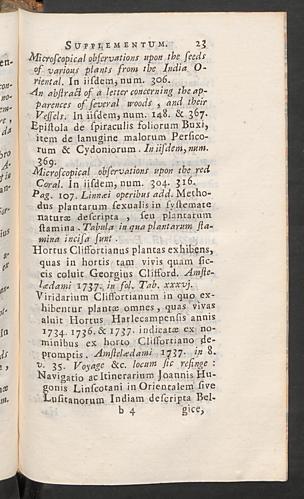 SUPPLEMENTUM. 23
Microscopical observations upon the seeds
of various plants from the India O-
riental. In iisdem, num. 306.
An abstract of a letter concerning the ap-
parences of several woods, and their
Vessels. In iisdem, num. 148. & 367.
Epistola de spiraculis foliorum Buxi,
item de lanugine malorum Persico-
rum & Cydoniorum. In iisdem, num.
369.
Microscopical observations upon the red
Coral. In iisdem, num. 304. 316.
Pag. 107. Linnæi operibus add. Metho-
dus plantarum sexualis in systemate
naturæ descripta, seu plantarum
stamina. Tabula in qua plantarum sta-
mina incisa sunt.
Hortus Cliffortianus plantas exhibens,
quas in hortis tam vivis quam sic-
cis coluit Georgius Clifford. Amste-
lædami 1737. in fol. Tab. xxxvj.
Viridarium Cliffortianum in quo ex-
hibentur plantæ omnes, quas vivas
aluit Hortus Harlecampensis annis
1734. 1736. & 1737. indicatæ ex no-
minibus ex horto Cliffortiano de-
promptis. Amstelædami 1737. in 8.
v. 35. Voyage &c. locum sic refinge:
Navigatio ac Itinerarium Joannis Hu-
gonis Linscotani in Orientalem sive
Lusitanorum Indiam descripta Bel-
b 4 gice,